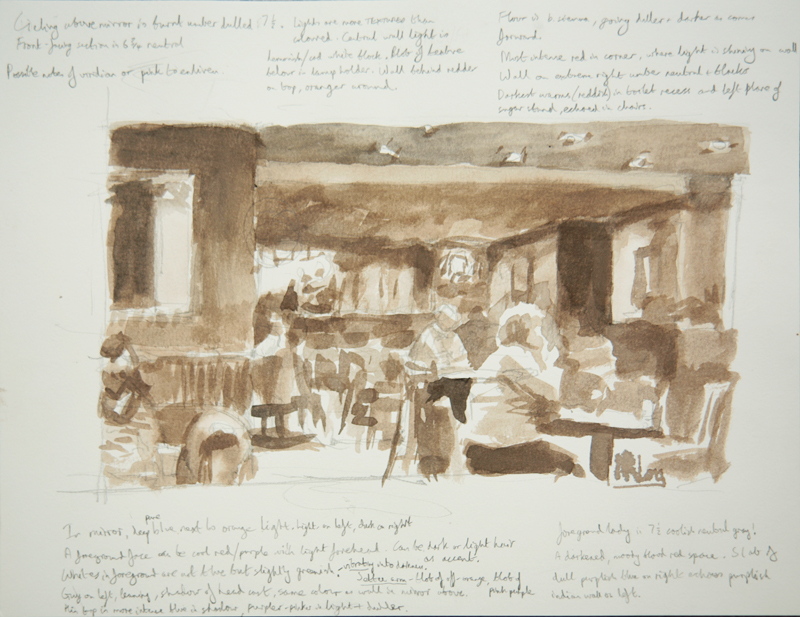 Ceiling above mirror is burnt umber dulled : 7½.
Front-facing section is 6 by neutral
Possible notes of viridian or pink to enliven.
Lights are more than
colored. Central wall light is
white black. Blob of
below in lamp holder. Wall behind redder
on top, oranger around.
Floor is b. sienna, going duller + darker as comes
forward.
Most intense red in corner, where light is shining on wall
Wall on extreme right umber neutral + blacker
Darkest warms (reddish) in toilet recess and left plane of
sugar stand, echoed in chairs.
In mirror, deep pure blue next to orange light. Light on left, dark on right
A foreground face can be cool red/purple with light forehead. Can be dark or light hair
as accent.
Whites in foreground are not blue but slightly greenish. into darkness.
Settee arm - blob of off-orange, blob of
pink purple
Guy on left, leaning, shadow of head cast, same colour as wall in mirror above.
top in more intense blue in shadow, purpler-pinks in light + dabbler.
foreground lady is 7½ coolish neutral gray!
A darkened, moody blood red space. Slab of
dull purplish blue on right echoes purplish
indian wall on left.